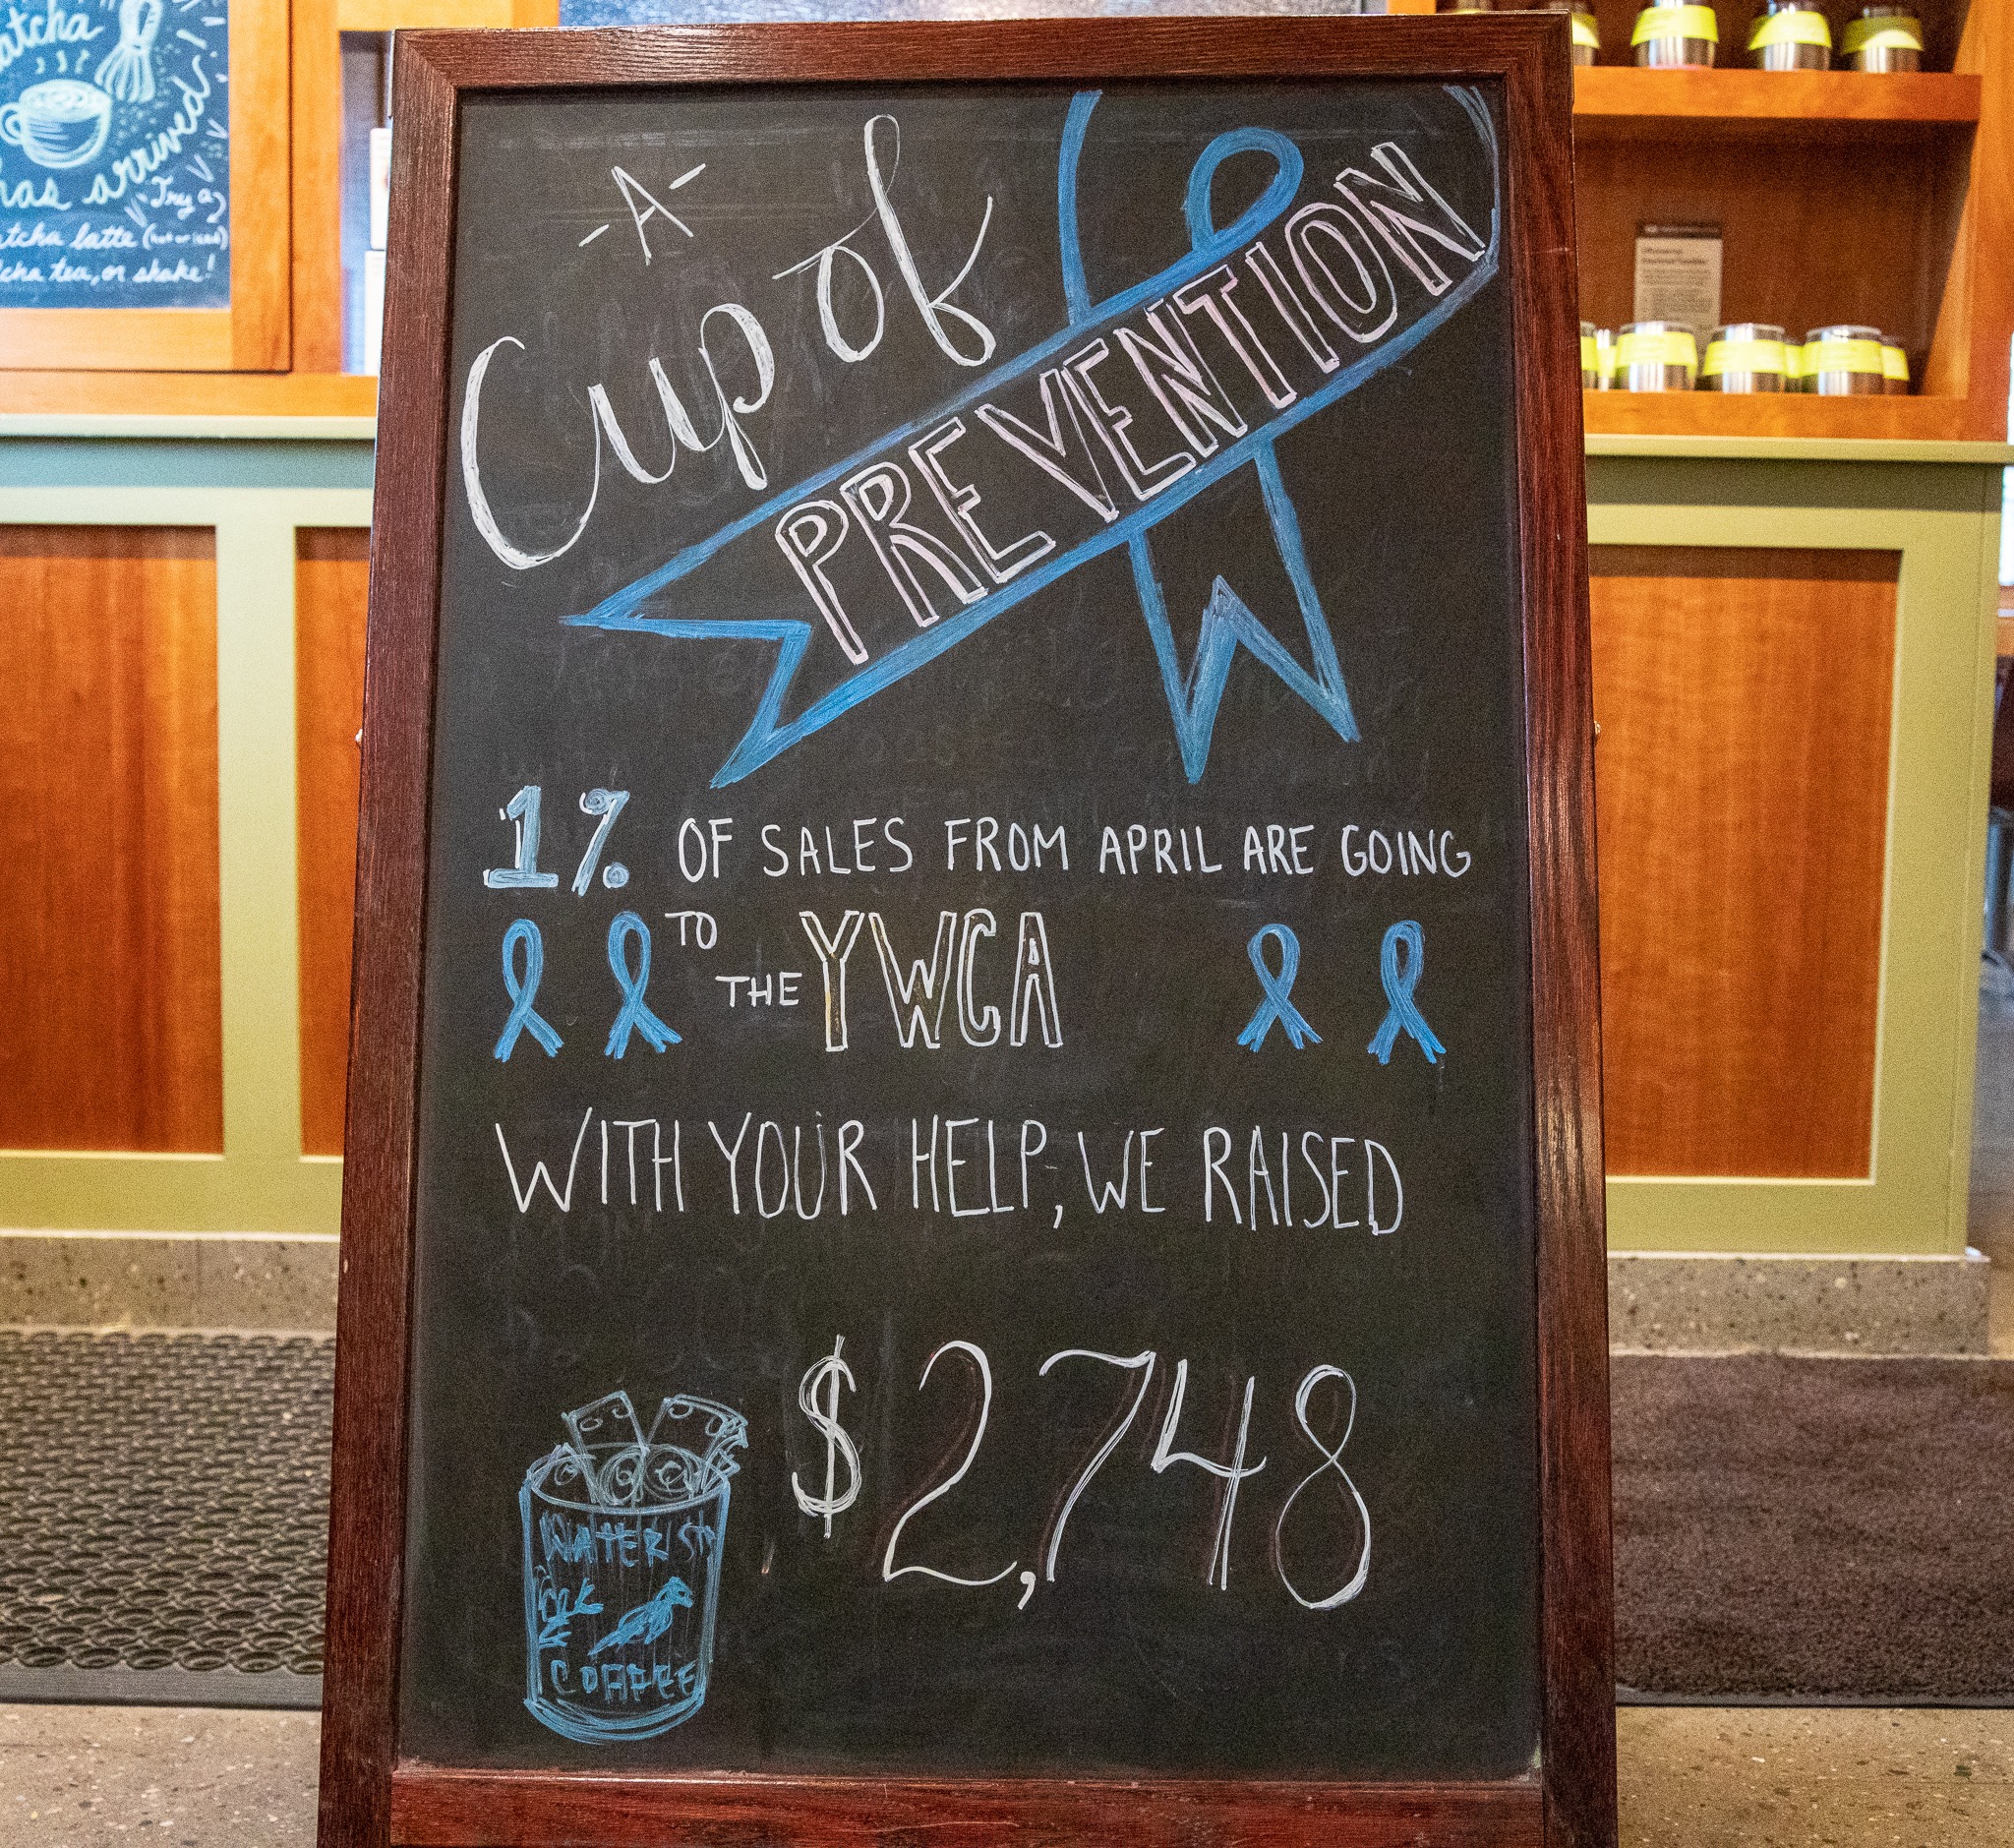 atcha
has arrived
Try a
atcha latte (hot or iced)
cha tea, or shake!
-A-
Cup of
PREVENTION
1% OF SALES FROM APRIL ARE GOING
TO
THE YWCA
WITH YOUR HELP, WE RAISED
$2,748
WATER ST
COFFEE